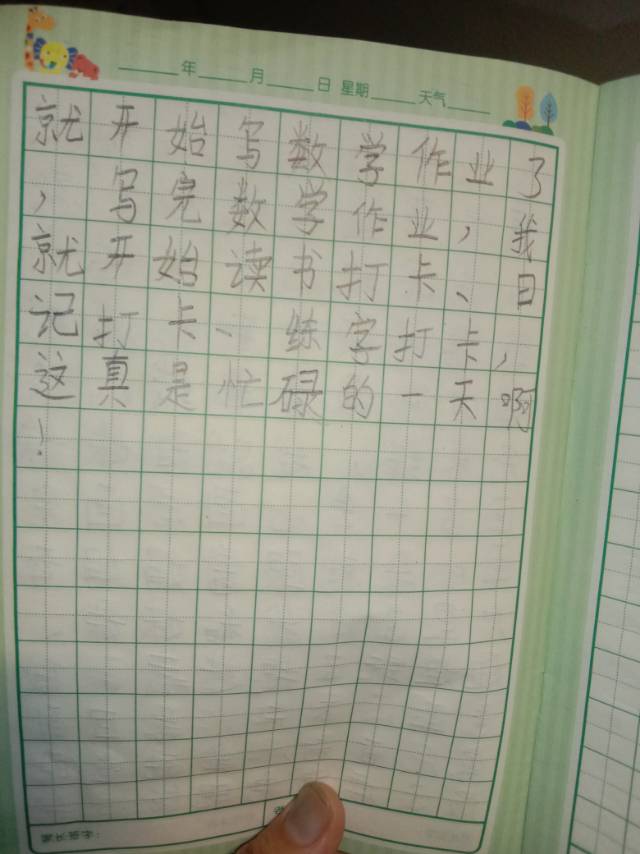 ____年____月____日 星期____天气____
就开始写数学作业了
，写完数学作业，我
就开始读书打卡、日
记打卡、练字打卡，
这真是忙碌的一天啊
！